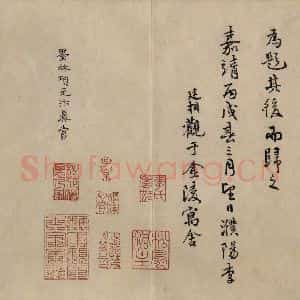 為題其後而歸之
嘉靖丙戌春三月望日濮陽李
廷相觀于金陵寓舍
墨林項元汴真賞
Shufawang.cn